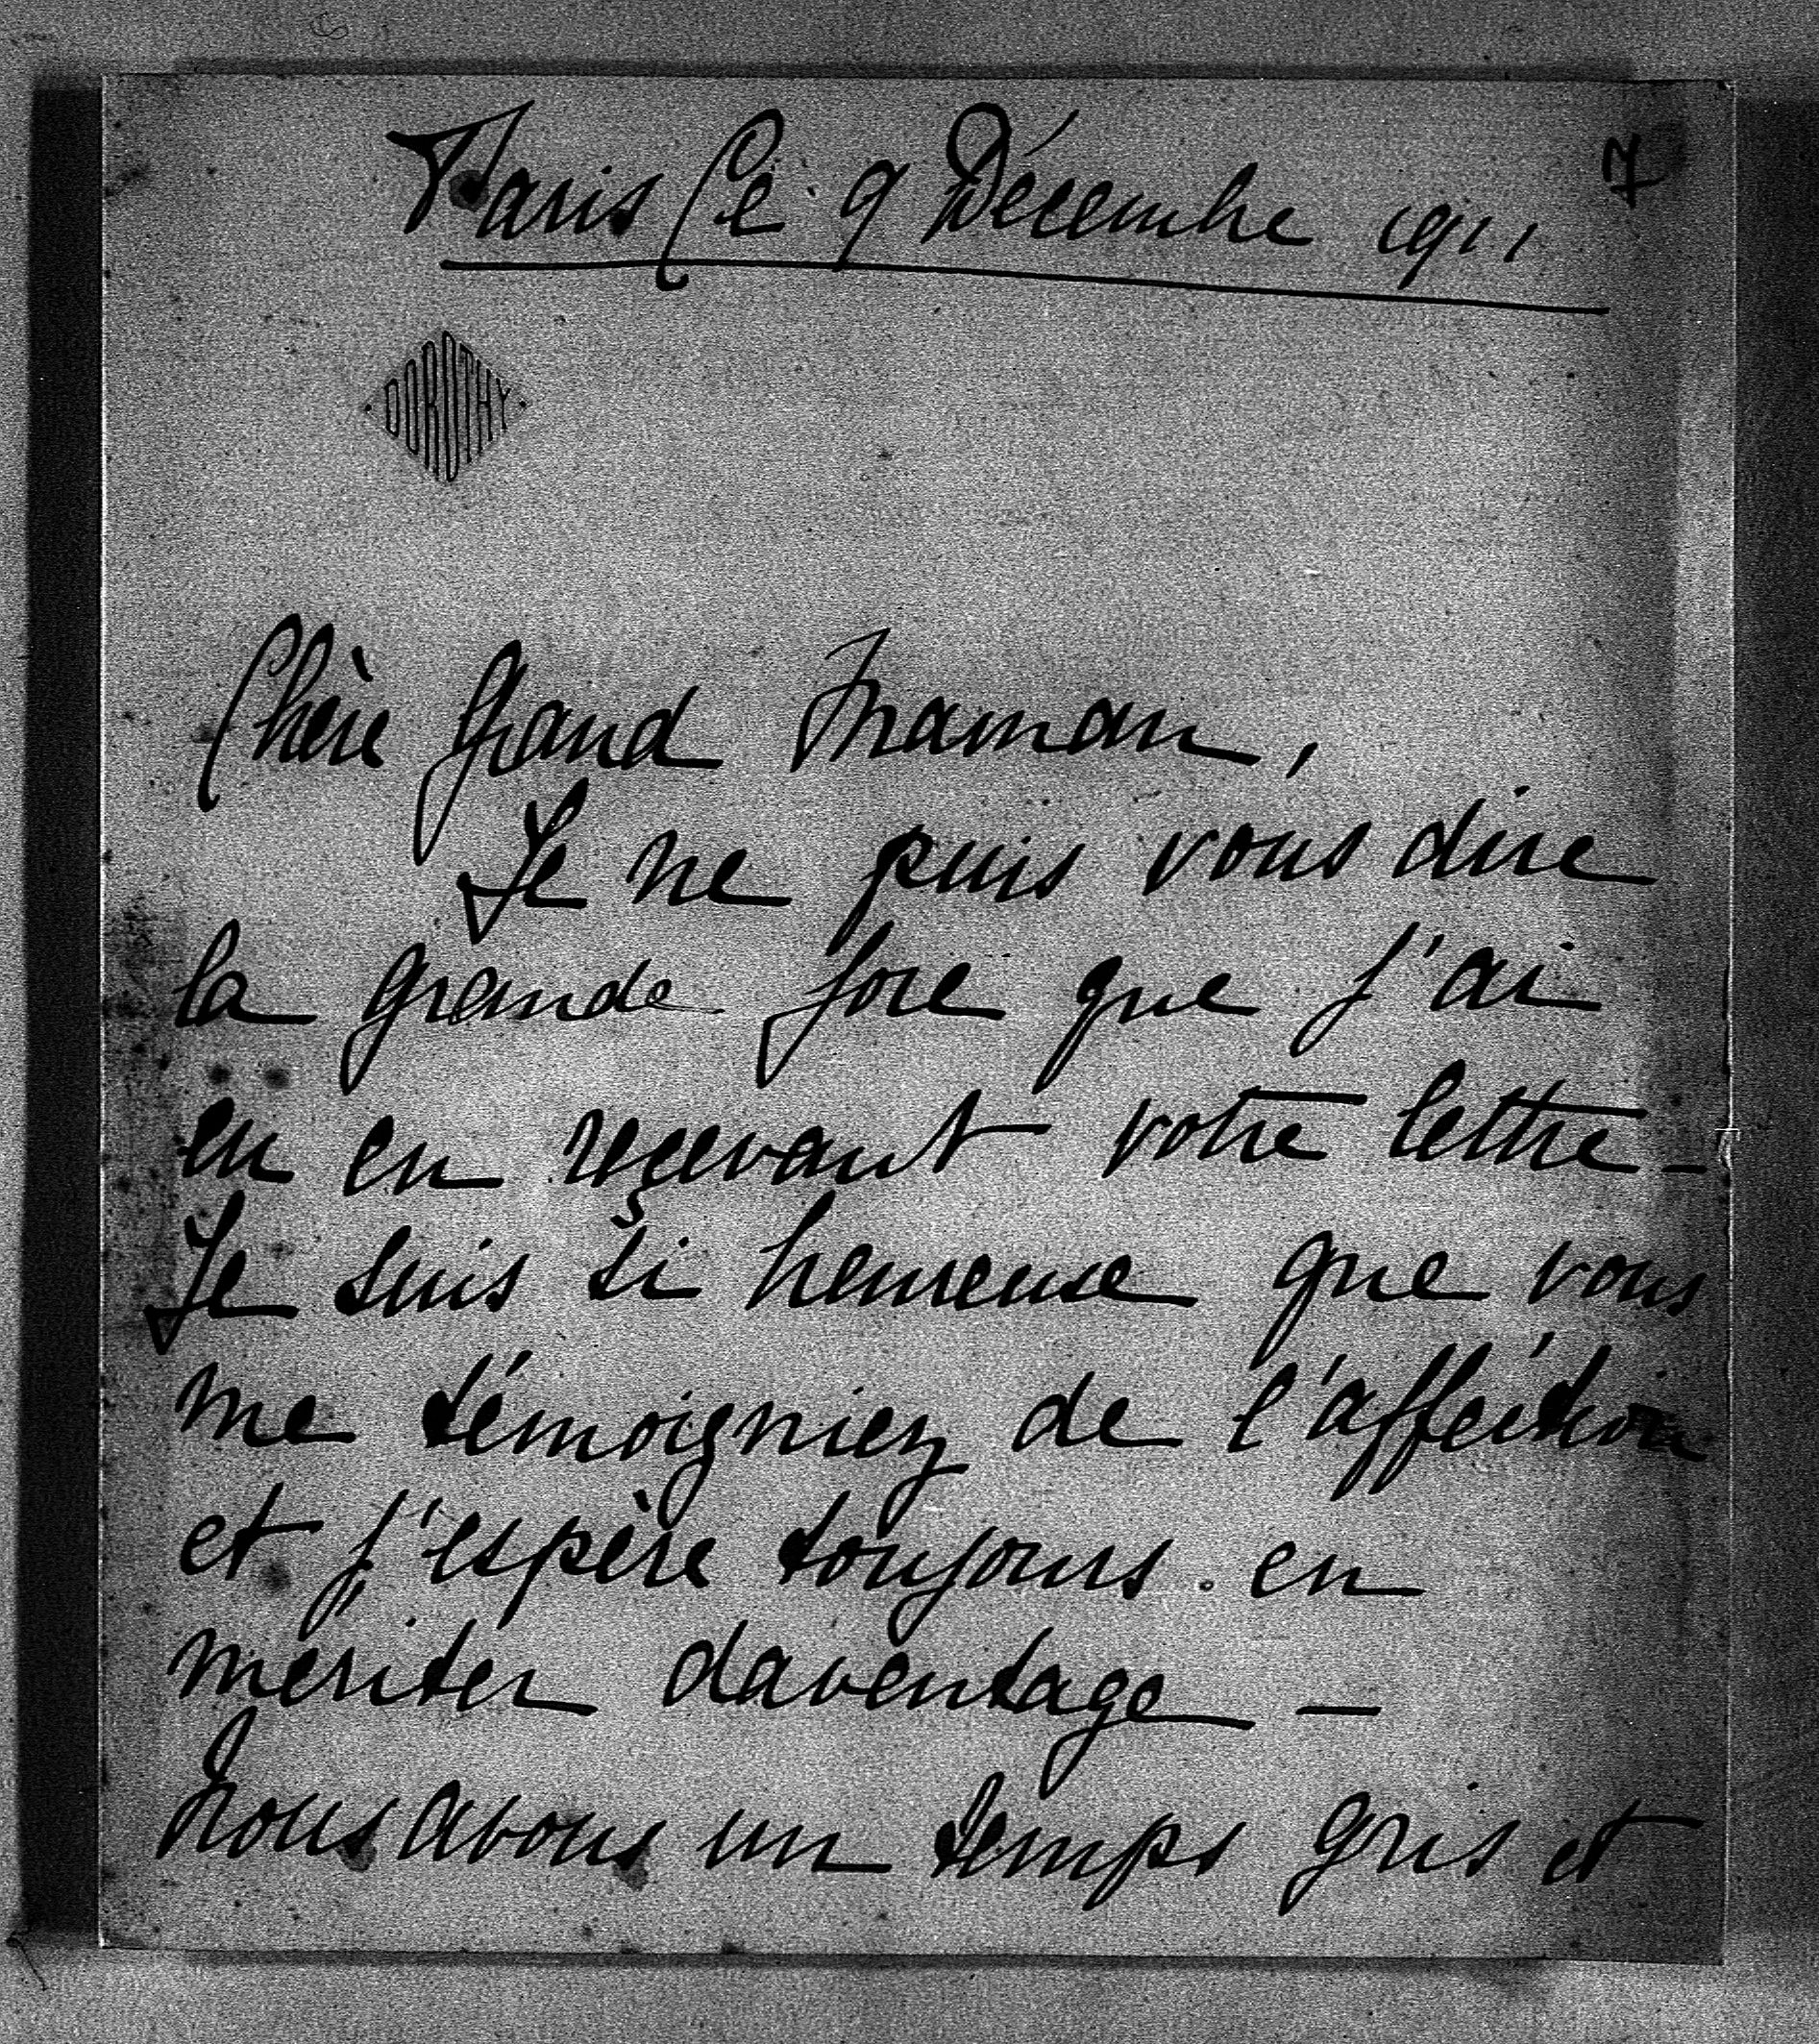 7
Paris Ce 9 Décembre 1911
DOROTHY
Chère Grand Maman,
Je ne puis vous dire
la grande joie que j'ai
eu en reçevant votre lettre -
Je suis si heureuse que vous
me témoigniez de l'affection
et j'espère toujours en
meriter daventage -
Nous avons un temps gris et